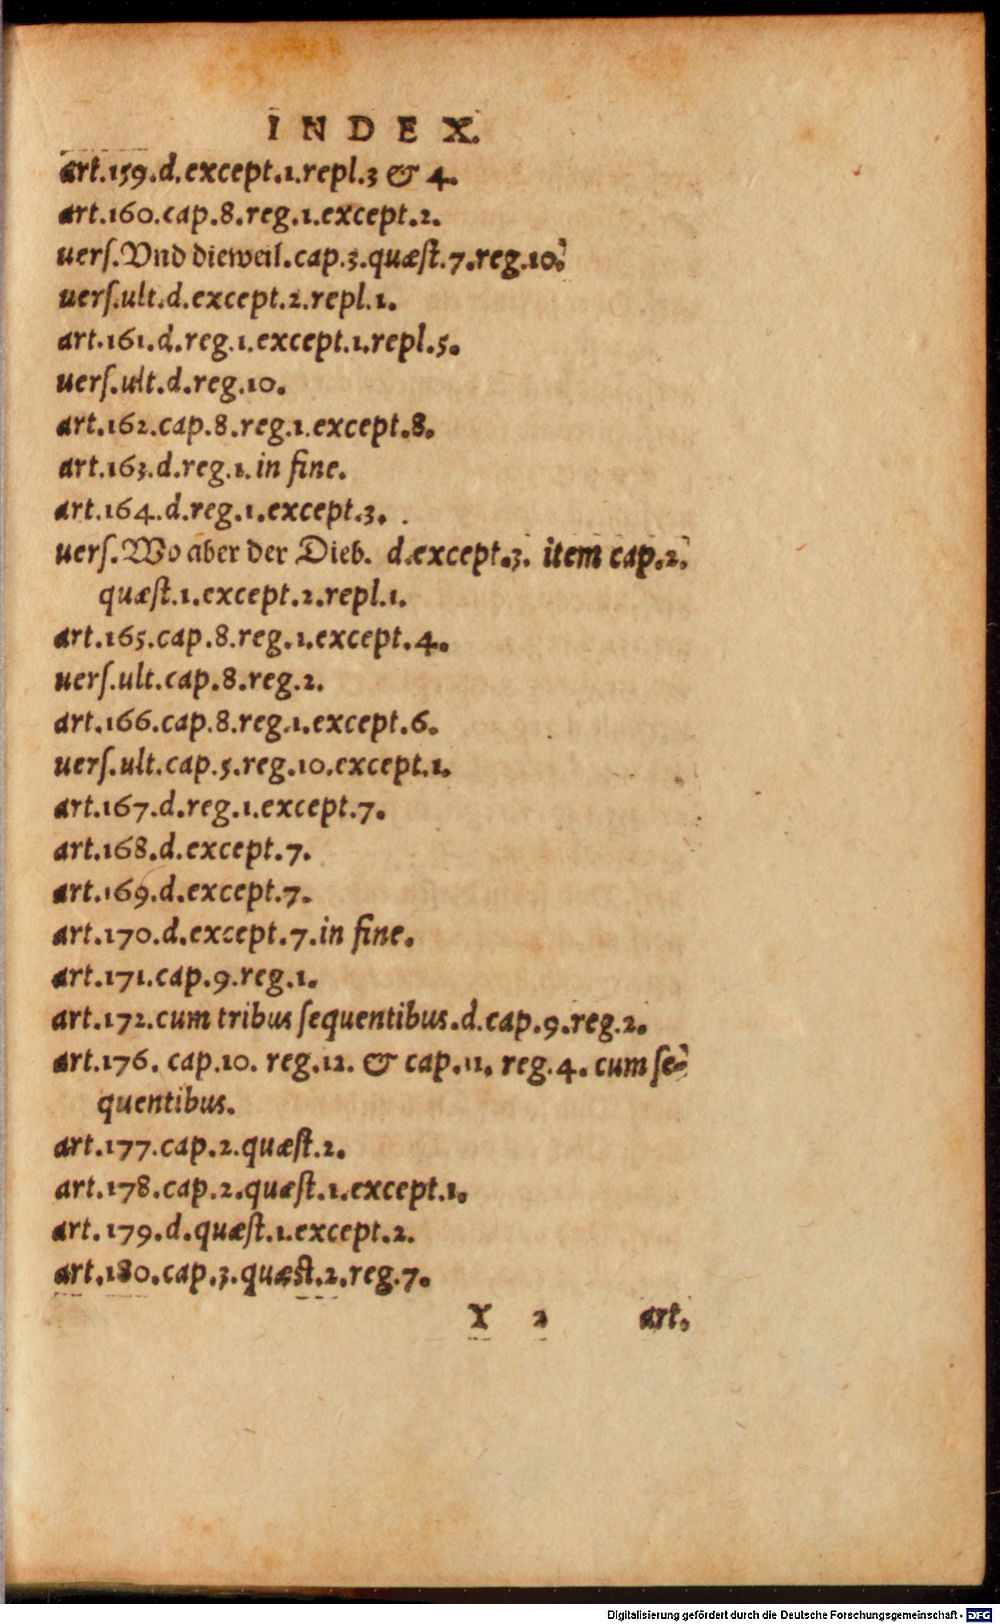 INDEX.
art.159.d.except.1.repl.3 & 4.
art.160.cap.8.reg.1.except.2.
uerſ.Vnd dieweil.cap.3.quæſt.7.reg.10.
uerſ.ult.d.except.2.repl.1.
art.161.d.reg.1.except.1.repl.5.
uerſ.ult.d.reg.10.
art.162.cap.8.reg.1.except.8.
art.163.d.reg.1.in fine.
art.164.d.reg.1.except.3.
uerſ.Wo aber der Dieb. d.except.3. item cap.2.
quæſt.1.except.2.repl.1.
art.165.cap.8.reg.1.except.4.
uerſ.ult.cap.8.reg.2.
art.166.cap.8.reg.1.except.6.
uerſ.ult.cap.5.reg.10.except.1.
art.167.d.reg.1.except.7.
art.168.d.except.7.
art.169.d.except.7.
art.170.d.except.7.in fine.
art.171.cap.9.reg.1.
art.172.cum tribus ſequentibus.d.cap.9.reg.2.
art.176. cap.10. reg.12. & cap.11. reg.4. cum ſe-
quentibus.
art.177.cap.2.quæſt.2.
art.178.cap.2.quæſt.1.except.1.
art.179.d.quæſt.1.except.2.
art.180.cap.3.quæſt.2.reg.7.
Y 2 art.
Digitalisierung gefördert durch die Deutsche Forschungsgemeinschaft - DFG